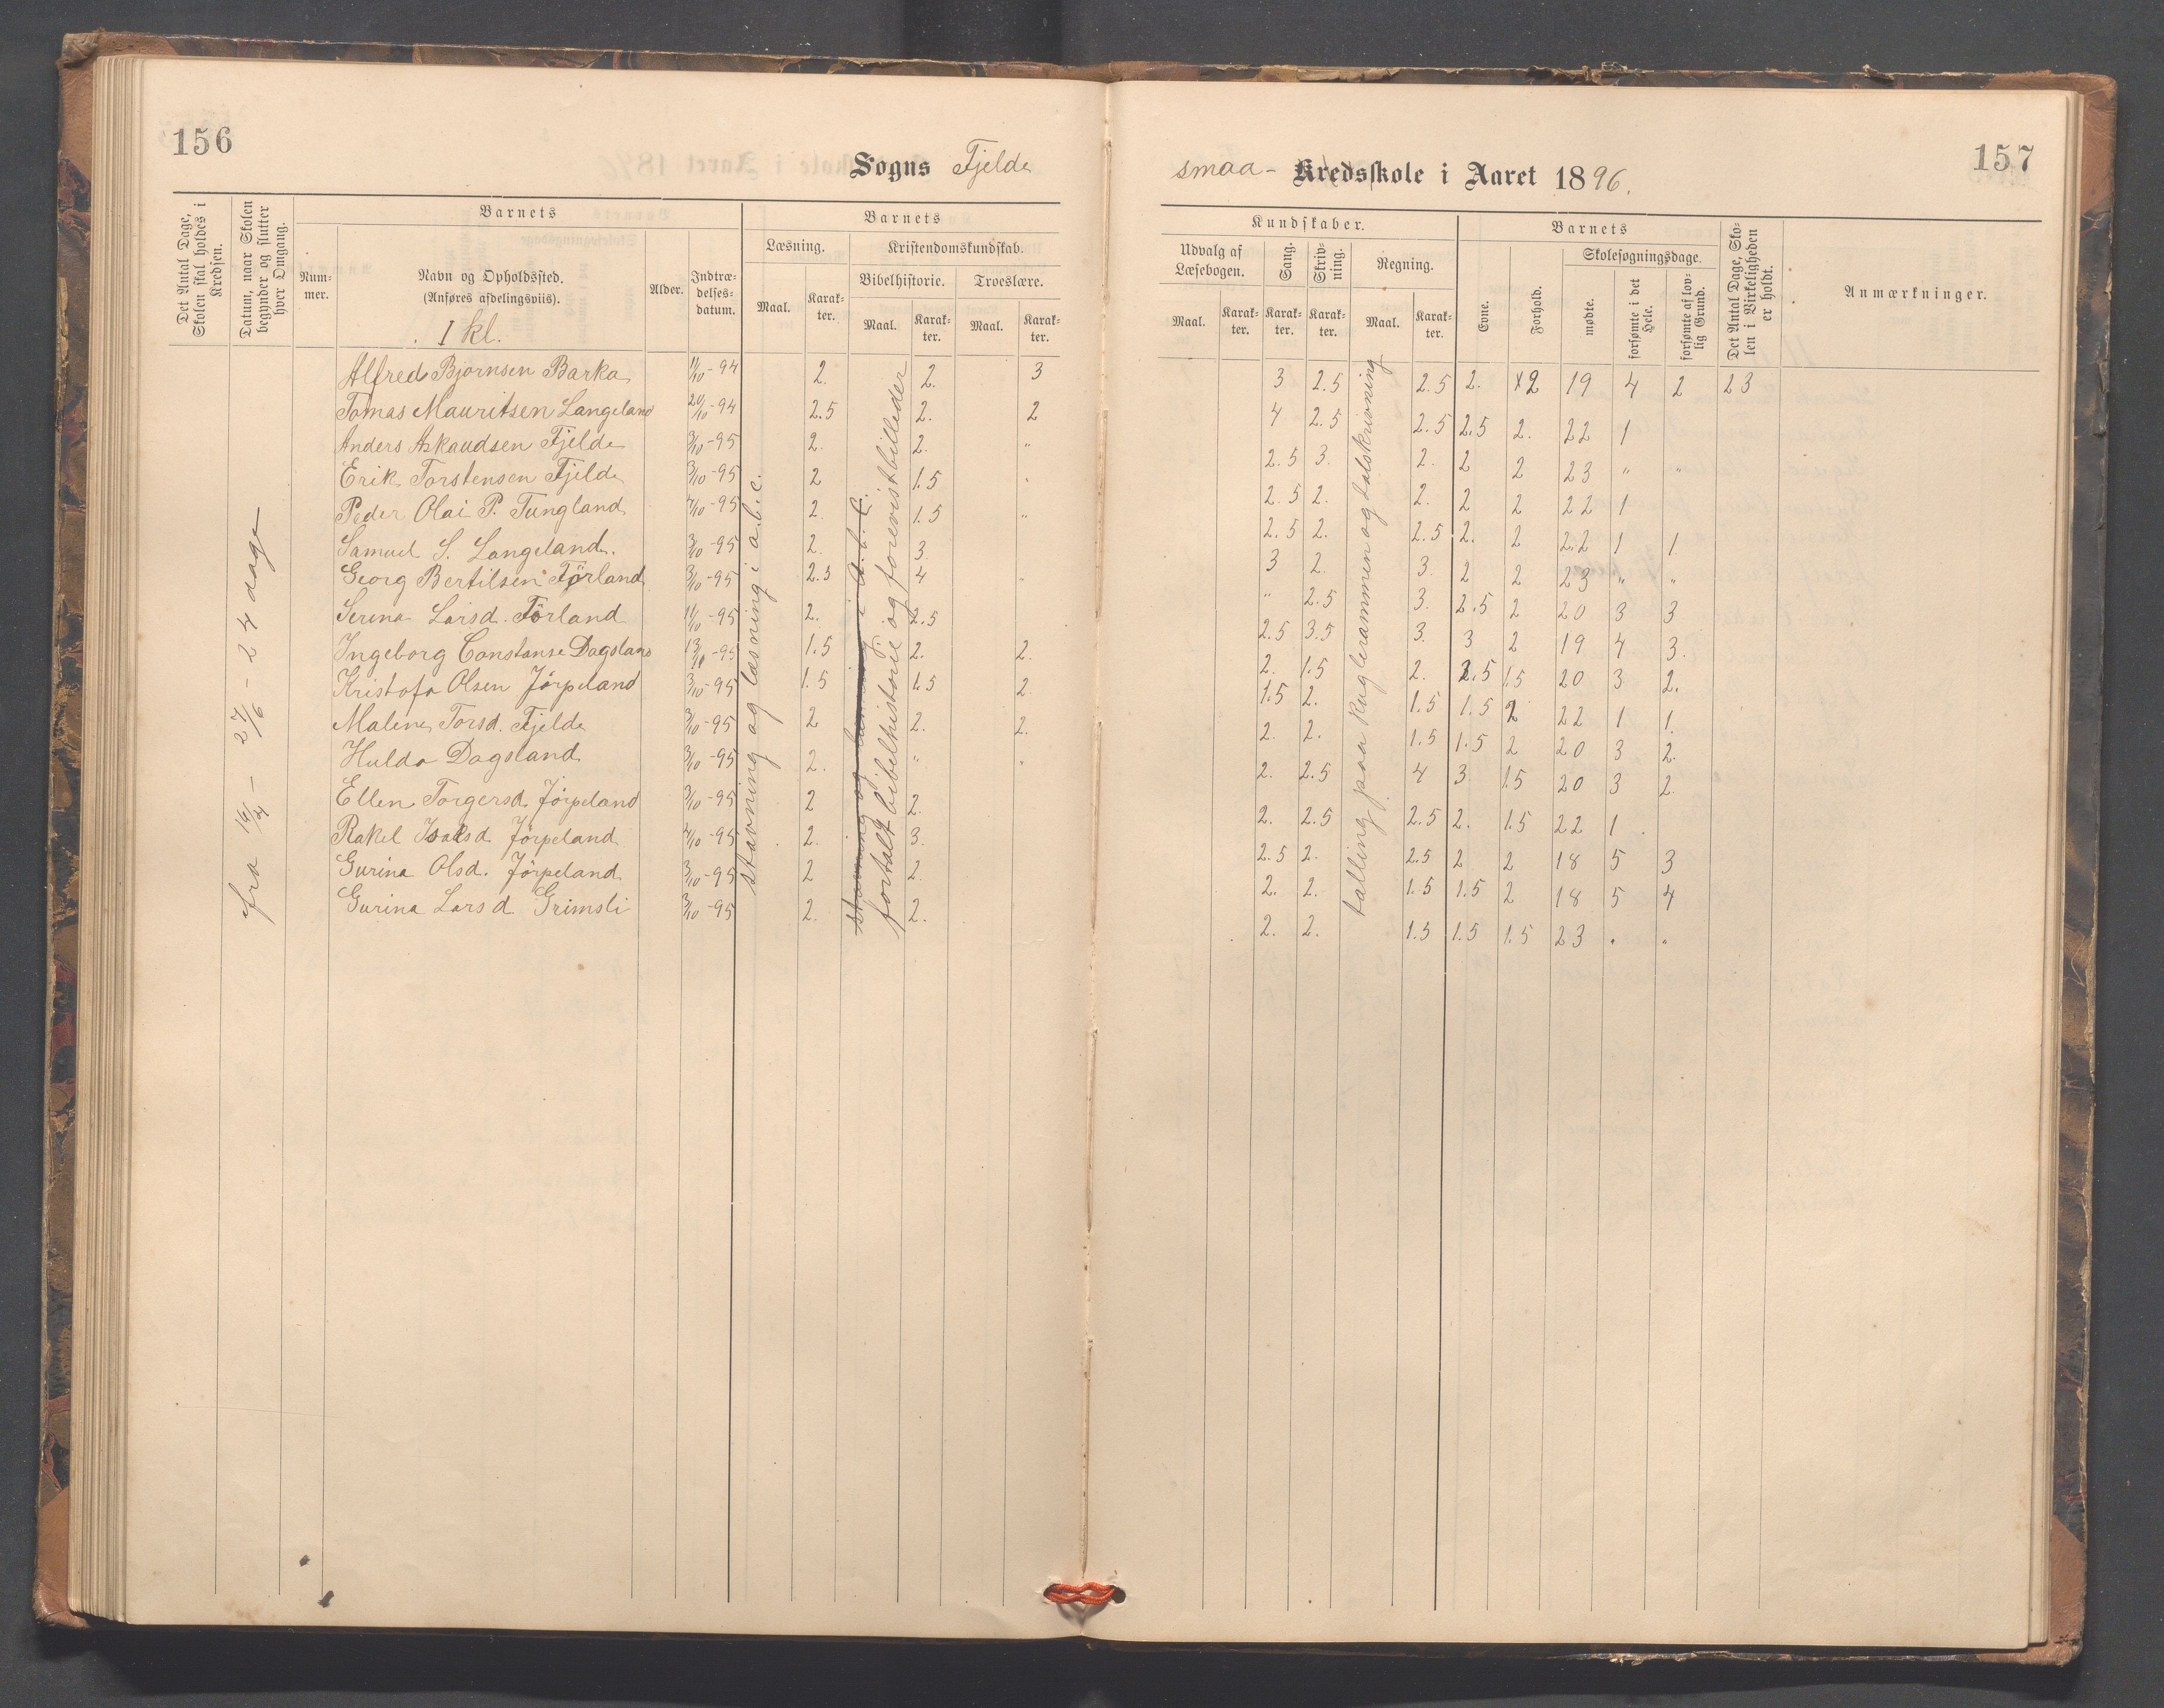 156
Sogns Fjelde
Det Antal Dage, Skolen skal holdes i Kredsen.
Datum, naar Skolen begynder og slutter hver Omgang.
Barnets
Num-mer.
Navn og Opholdssted.
(Anføres afdelingsviis).
I kl.
Alder.
Indtræ-delses-datum.
Barnets
Læsning.
Kristendomskundskab.
Bibelhistorie.
Troeslære.
Maal.
Karak-ter.
Maal.
Karak-ter.
Maal.
Karak-ter.
fra 16/4 - 27/6 - 24 dage
stavning og læsning i a.b.c.
stavning og læsning i A.b.C.
fortalt bibelhistorie og forevist billeder
Alfred Bjørnsen Barka 11/10-94 2. 2. 3
Tomas Mauritsen Langeland 20/10-94 2.5 2. 2
Anders Askaudsen Fjelde 3/10-95 2. 2. "
Erik Torstensen Fjelde 3/10-95 2 1.5 "
Peder Olai P. Tungland 4/10-95 2. 1.5 "
Samuel S. Langeland. 3/10-95 2. 3.
Georg Bertilsen Førland 3/10-95 2.5 4 "
Serina Larsd. Førland 11/10-95 2. 2.5
Ingeborg Constanse Dagsland 13/10-95 1.5 2. 2.
Kristofa Olsen Jørpeland 3/10-95 1.5 1.5 2.
Maline Torsd. Fjelde 3/10-95 2 2. 2.
Hulda Dagsland 3/10-95 2. " "
Ellen Torgersd. Jørpeland 3/10-95 2 2.
Rakel Isaksd. Jørpeland 4/10-95 2. 3.
Gurina Olsd. Jørpeland. 3/10-95 2 2.
Gurina Larsd. Grimsli 3/10-95 2. 2.
157
smaa- Kredsskole i Aaret 1896.
Kundskaber.
Udvalg af Læsebogen.
Sang.
Skriv-ning.
Regning.
Maal.
Karak-ter.
Karak-ter.
Karak-ter.
Maal.
Karak-ter.
Barnets
Evne.
Forhold.
Skolesøgningsdage.
mødte.
forsømte i det Hele.
forsømte af lov-lig Grund.
Det Antal Dage, Sko-len i Virkeligheden er holdt.
Anmærkninger.
talling paa kuglerammen og talskrivning
3 2.5 2.5 2. x2 19 4 2 23
4 2.5 2.5 2.5 2. 22 1
2.5 3. 2. 2 2 23 " "
2.5 2. 2. 2 2 22 1
2.5 2. 2.5 2. 2 22 1 1.
3 2. 3. 2 2 23 " "
" 2.5 3. 2.5 2 20 3 3
2.5 3.5 3. 3 2 19 4 3.
2. 1.5 2. 2.5 1.5 20 3 2.
1.5 2. 1.5 1.5 2 22 1 1.
2. 2. 1.5 1.5 2 20 3 2.
2. 2.5 4 3. 1.5 20 3 2.
2. 2.5 2.5 2. 1.5 22 1.
2.5 2. 2.5 2 2 18 5 3
2. 2. 1.5 1.5 2 18 5 4
2. 2. 1.5 1.5 1.5 23 " "